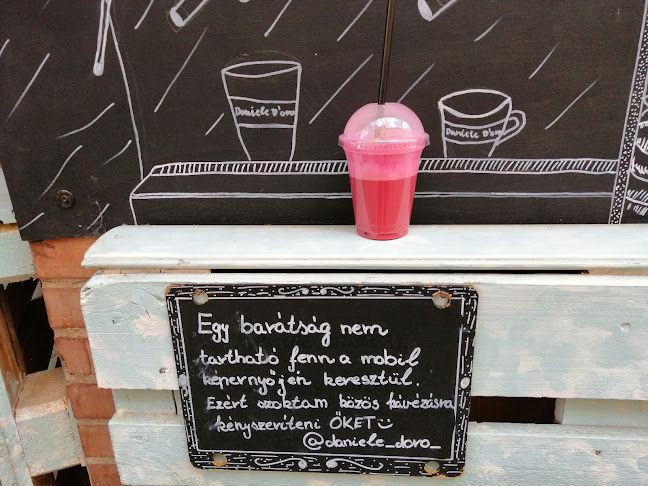 Daniele D'oro
Daniele D'oro
Egy barátság nem
tartható fenn a mobil
képernyőjén keresztül.
Ezért szoktam közös kávézásra
kényszeríteni ŐKET☺
@daniele_doro_